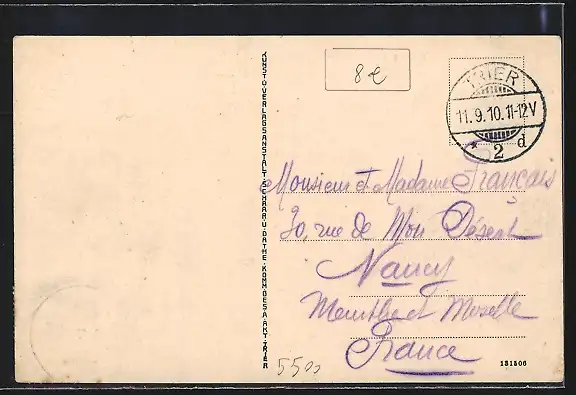 8 €
TRIER
11.9.10.11-12V
* 2 d
KUNST & VERLAGSANSTALT SCHAAR & DATHE · KOMM.-GES. A. AKT. TRIER
Monsieur et Madame Français
30, rue de Mon Désert
Nancy
Meurthe et Moselle
France
5500
151506